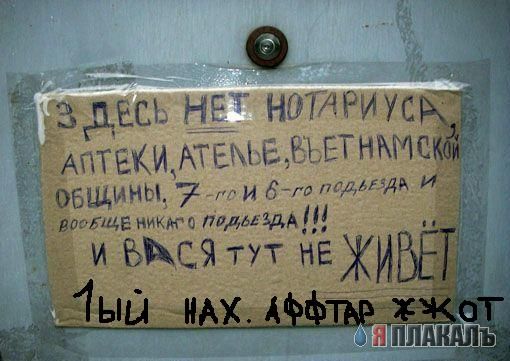 ЗДЕСЬ НЕТ НОТАРИУСА,
АПТЕКИ, АТЕЛЬЕ, ВЬЕТНАМСКОЙ
ОБЩИНЫ, 7-го И 6-го ПОДЬЕЗДА И
ВООБЩЕ НИКАГО ПОДЬЕЗДА!!!
И ВАСЯ ТУТ НЕ ЖИВЁТ
1ЫЙ НАХ. АФФТАР ЖЖОТ
ЯПЛАКАЛЪ